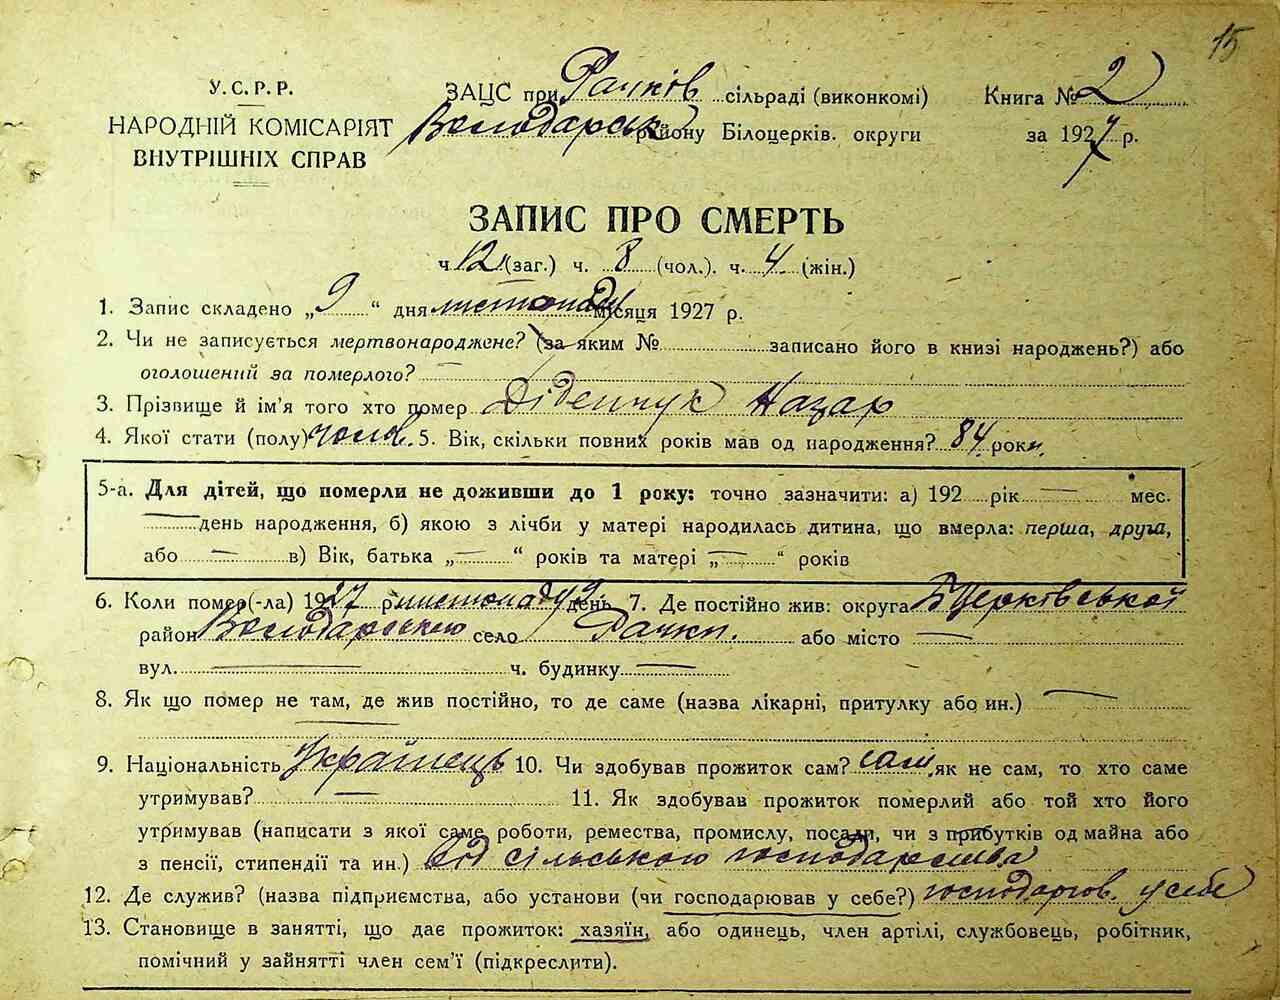 15
У.С.Р.Р.
НАРОДНІЙ КОМІСАРІЯТ
ВНУТРІШНІХ СПРАВ
ЗАЦС при Рачків сільраді (виконкомі) Книга № 2
Володарськ району Білоцерків. округи за 1927 р.
ЗАПИС ПРО СМЕРТЬ
ч. 12 (заг.) ч. 8 (чол.). ч. 4 (жін.)
1. Запис складено „9“ дня листопаду місяця 1927 р.
2. Чи не записується мертвонароджене? (за яким № записано його в книзі народжень?) або
оголошений за померлого? —
3. Прізвище й ім'я того хто помер Діденчук Назар
4. Якої стати (полу) чолов. 5. Вік, скільки повних років мав од народження? 84 роки.
5-а. Для дітей, що померли не доживши до 1 року: точно зазначити: а) 192 рік — мес.
— день народження, б) якою з лічби у матері народилась дитина, що вмерла: перша, друга,
або — в) Вік, батька „—“ років та матері „—“ років
6. Коли помер(-ла) 1927 р. листопаду 9 день 7. Де постійно жив: округа БЦерківської
район Володарського село Рачки. або місто —
вул. — ч. будинку —
8. Як що помер не там, де жив постійно, то де саме (назва лікарні, притулку або ин.) —
9. Національність Українець 10. Чи здобував прожиток сам? сам як не сам, то хто саме
утримував? — 11. Як здобував прожиток померлий або той хто його
утримував (написати з якої саме роботи, ремества, промислу, посади, чи з прибутків од майна або
з пенсії, стипендії та ин.) від сільського господарства
12. Де служив? (назва підприємства, або установи (чи господарював у себе?) господарюв. у себе
13. Становище в занятті, що дає прожиток: хазяїн, або одинець, член артілі, службовець, робітник,
помічний у зайнятті член сем'ї (підкреслити).